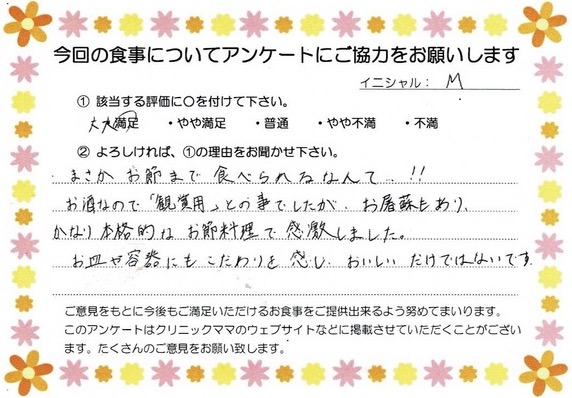 今回の食事についてアンケートにご協力をお願いします
イニシャル： M
① 該当する評価に○を付けて下さい。
大大満足 ・やや満足 ・普通 ・やや不満 ・不満
② よろしければ、①の理由をお聞かせ下さい。
まさか お節まで 食べられるなんて、!!
お酒なので「観賞用」との事でしたが、お屠蘇もあり、
かなり本格的な お節料理で 感激しました。
お皿や容器にもこだわりを感じ、おいしいだけではないです
ご意見をもとに今後もご満足いただけるお食事をご提供出来るよう努めてまいります。
このアンケートはクリニックママのウェブサイトなどに掲載させていただくことがござい
ます。たくさんのご意見をお願い致します。